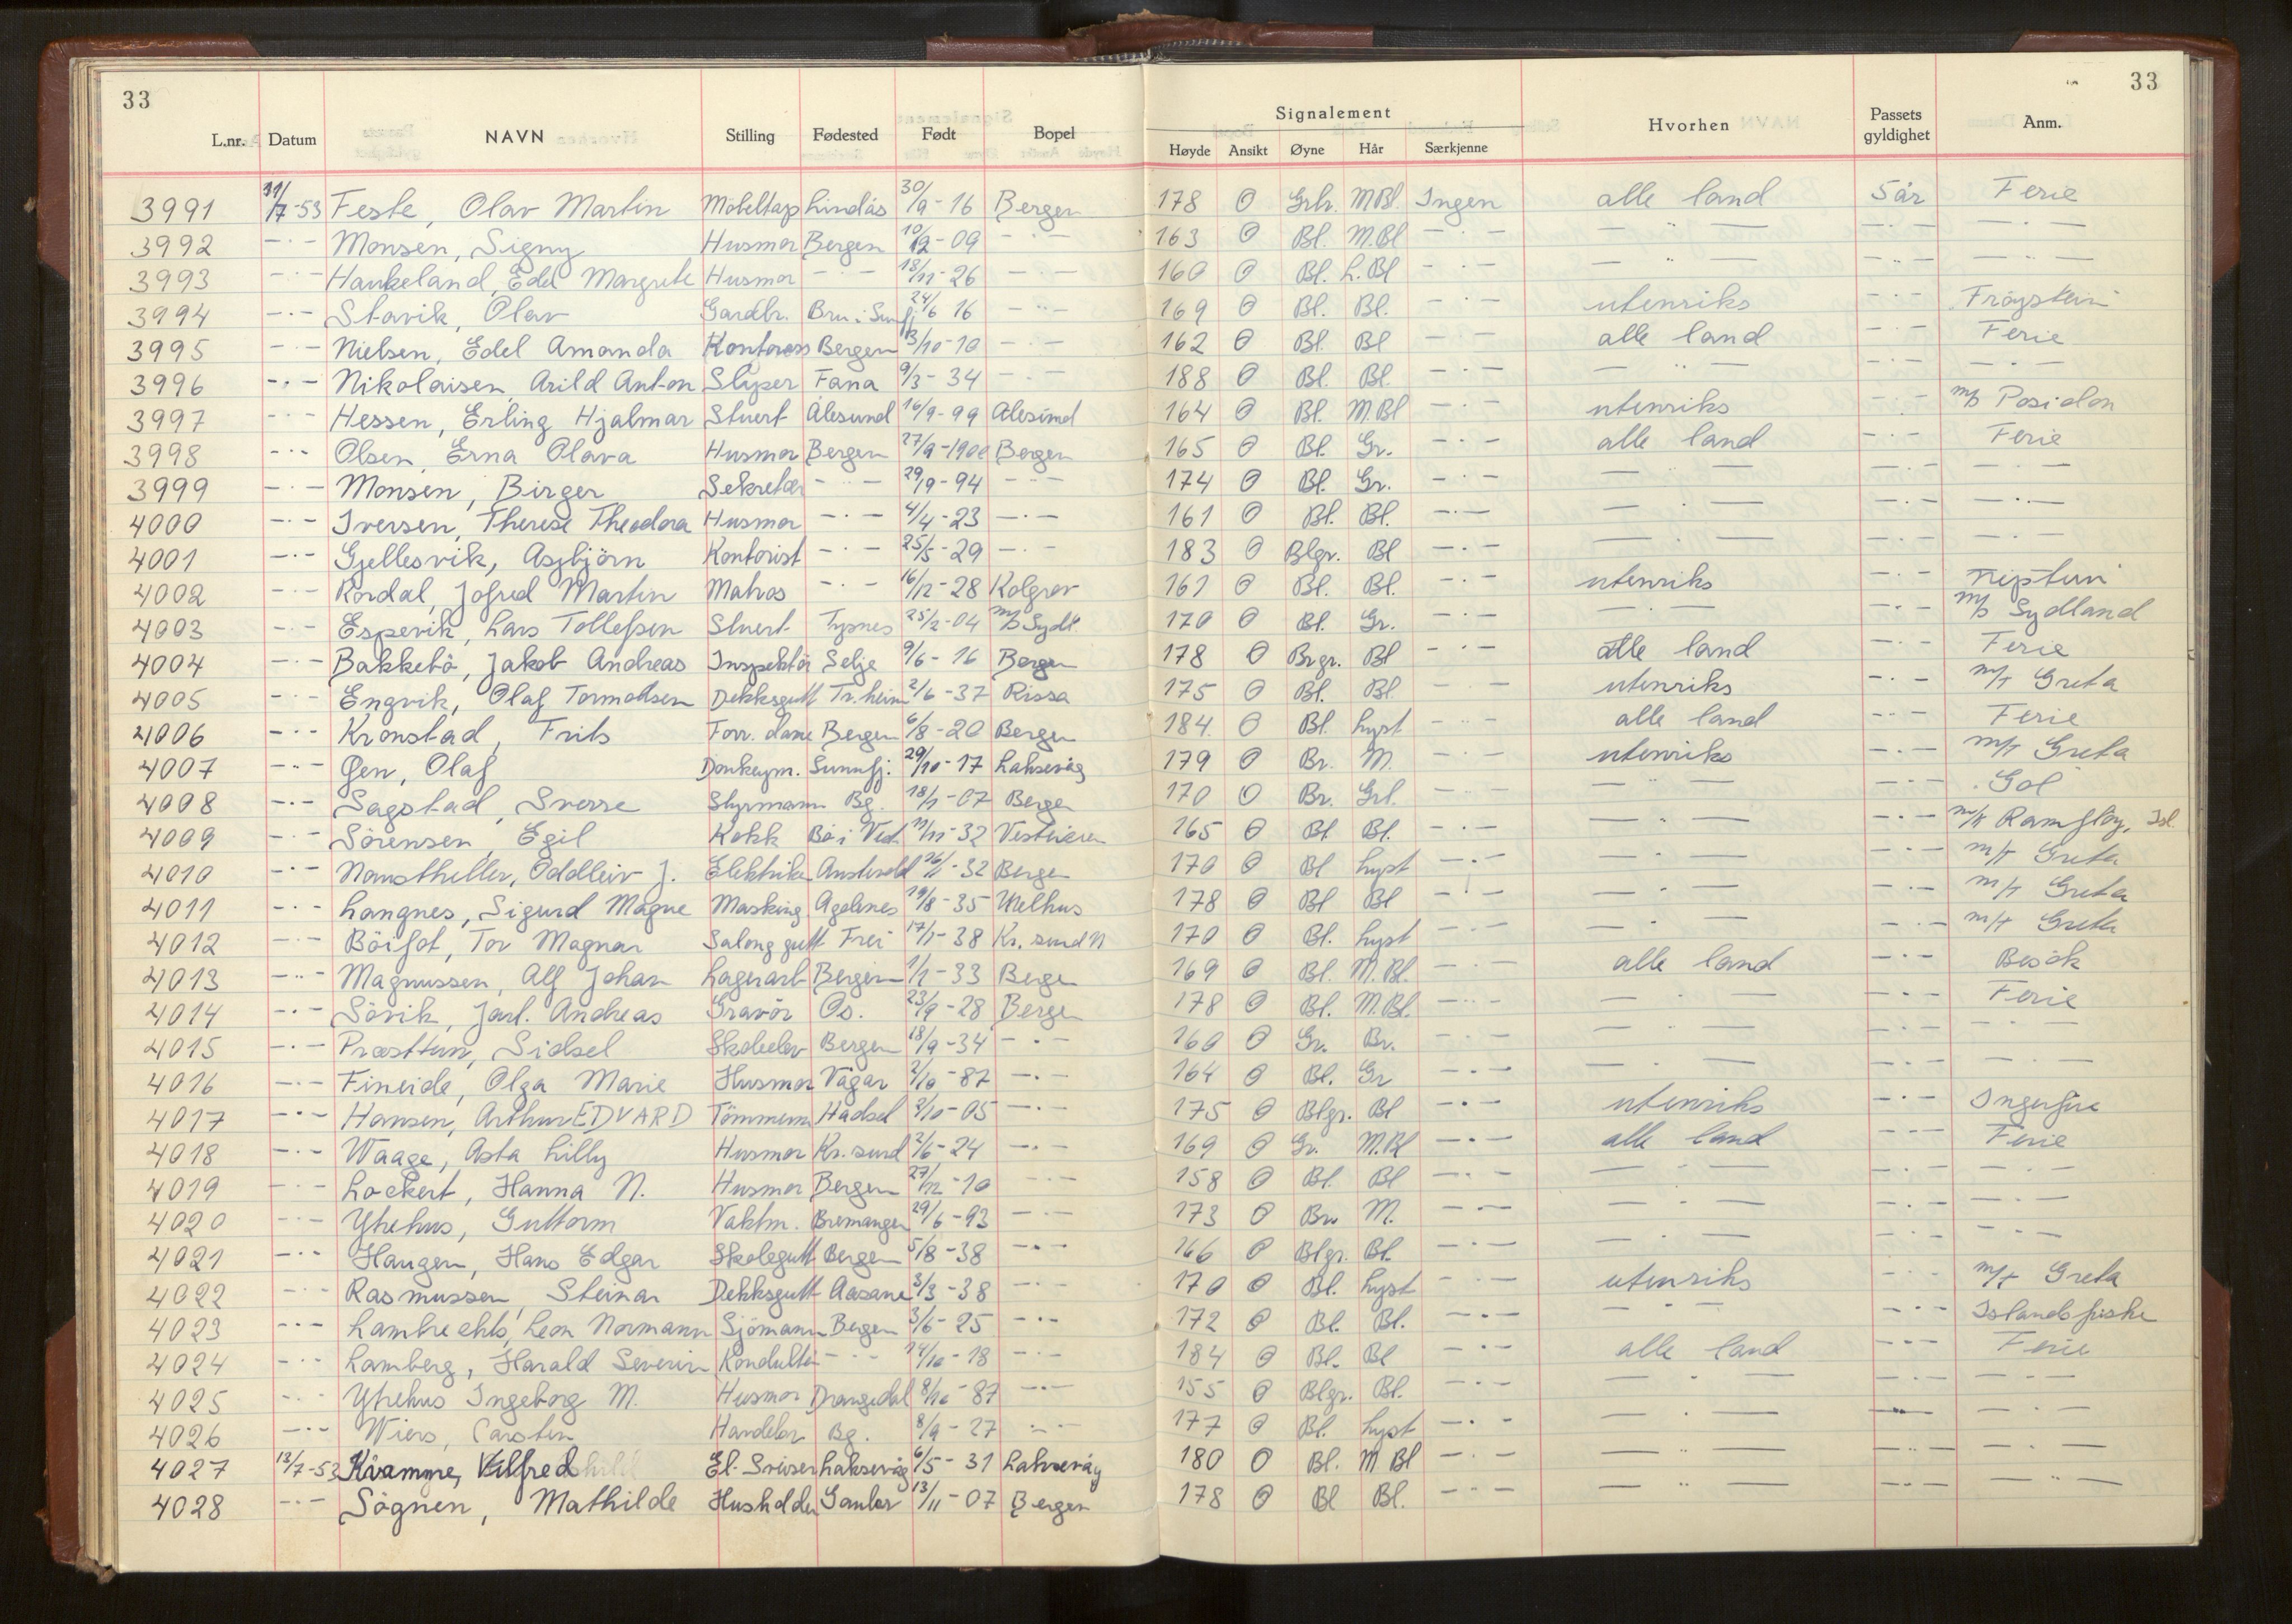 33 33
Signalement
L.nr. Datum NAVN Stilling Fødested Født Bopel Høyde Ansikt Øyne Hår Særkjenne Hvorhen Passets gyldighet Anm.
3991 31/7-53 Feste, Olav Martin Möbeltap Lindås 30/9-16 Bergen 178 O Grbr. M.Bl. Ingen alle land 5 år Ferie
3992 -·- Monsen, Signy Husmor Bergen 10/12-09 -·- 163 O Bl. M.Bl -·- -"- -·- -·-
3993 -·- Haukeland, Edel Margrete Husmor -·- 18/11-26 -- 160 O Bl. L.Bl -·- -"- -·- -·-
3994 -·- Stavik, Olav Gardbr. Bru i Sunfj 24/6 16 -·- 169 O Bl. Bl. -·- utenriks -·- Fröystein
3995 -·- Nielsen, Edel Amanda Kontoriss Bergen 13/10-10 -·- 162 O Bl. Bl - alle land -·- Ferie
3996 -·- Nikolaisen, Arild Anton Slyper Fana 9/3-34 -·- 188 O Bl. Bl. -·- -"- -·- -·-
3997 -·- Hessen, Erling Hjalmar Stuert Ålesund 16/9-99 Ålesund 164 O Bl. M.Bl -·- utenriks -·- m/s Posidon
3998 -·- Olsen, Erna Olava Husmor Bergen 27/9-1900 Bergen 165 O Bl. Gr. -·- alle land -·- Ferie
3999 -·- Monsen, Birger Sekretær -·- 29/9-94 -·- 174 O Bl. Gr. -·- -"- -·- -·-
4000 -·- Iversen, Therese Theodora Husmor -·- 4/4-23 -·- 161 O Bl. Bl. -·- -·- -·- -·-
4001 -·- Gjellesvik, Asbjörn Kontorist -·- 25/5-29 -·- 183 O Blgr. Bl -·- -·- -·- -·-
4002 -·- Rördal, Jofred Martin Matros -·- 16/12-28 Kolgrov 161 O Bl. Bl. -·- utenriks -·- Neptun
4003 -·- Espevik, Lars Tollefsen Stuert Tysnes 25/2-04 m/s Sydl. 170 O Bl. Gr. -·- -·- -·- m/s Sydland
4004 -·- Bakkebö, Jakob Andreas Inspektör Selje 9/6-16 Bergen 178 O Brgr. Bl -·- alle land -·- Ferie
4005 -·- Engvik, Olaf Tormodsen Dekksgutt Tr.heim 2/6-37 Rissa 175 O Bl. Bl -- utenriks -·- m/t Greta
4006 -·- Kronstad, Frits Forr. Bergen 6/8-20 Bergen 184 O Bl. Lyst -·- alle land -·- Ferie
4007 -·- Gjen, Olaf Donkeym. Sunnfj. 29/10-17 Laksevåg 179 O Br. M. -·- utenriks -·- m/t Greta
4008 -·- Sagstad, Sverre Styrmann Bg. 18/1-07 Bergen 170 O Br. Grl. -·- -"- -·- Gol
4009 -·- Sörensen, Egil Kokk Bö i Vest 11/11-32 165 O Bl Bl. -·- -"- -·- m/k Ramsföy, Isl.
4010 -·- Naustheller, Oddleiv J. Elektriker Austevold 26/1-32 Bergen 170 O Bl Lyst -·- -·- -·- m/t Greta
4011 -·- Langnes, Sigurd Magne Masking Agdenes 19/8-35 Melhus 178 O Bl Bl -·- -·- -·- m/t Greta
4012 -·- Böifot, Tor Magnar Salong gutt Frei 17/1-38 Kr. sund N 170 O Bl. Lyst -·- -·- -·- m/t Greta
4013 -·- Magnussen, Alf Johan Lagerarb Bergen 1/1-33 Bergen 169 O Bl. M.Bl. -·- alle land -·- Besök
4014 -·- Sövik, Jarl. Andreas Gravör Os. 23/9-28 Bergen 178 O Bl. M.Bl. -·- -·- -·- Ferie
4015 -·- Præsttun, Sidsel Skoleelev Bergen 18/9-34 -·- 160 O Gr. Br. -·- -·- -·- -·-
4016 -·- Fineide, Olga Marie Husmor Vågar 2/10-87 -·- 164 O Bl. Gr -·- -·- -·- -·-
4017 -·- Hansen, Arthur EDVARD Tömmerm Hadsel 9/10-05 -·- 175 O Blgr. Bl -·- utenriks -·- Ingerfire
4018 -·- Waage, Asta Lilly Husmor Kr.sund 2/6-24 -·- 169 O Gr. M.Bl -·- alle land -·- Ferie
4019 -·- Lockert, Hanna N. Husmor Bergen 27/12-10 -·- 158 O Bl. Bl -·- -·- -·- -·-
4020 -·- Ytrehus, Guttorm Vaktm. Bremanger 29/6-93 -·- 173 O Br. M. -·- -·- -·- -·-
4021 -·- Haugen, Hans Edgar Skolegutt Bergen 5/8-38 -·- 166 O Blgr. Bl. -·- -·- -·- -·-
4022 -·- Rasmussen, Steinar Dekksgutt Aasane 3/3-38 -·- 170 O Bl. Lyst -·- utenriks -·- m/t Greta
4023 -·- Lambrechts, Leon Normann Sjömann Bergen 3/6-25 -·- 172 O Bl. Bl. -·- -"- -·- Islandsfiske
4024 -·- Lamberg, Harald Severin Konduktör -·- 14/10-18 -·- 184 O Bl. Bl -·- alle land -·- Ferie
4025 -·- Ytrehus Ingeborg M. Husmor Drangedal 8/10-87 -·- 155 O Blgr. Bl. -·- -·- -·- -·-
4026 -·- Wiers, Carsten Handelsr Bg. 8/9-27 -·- 177 O Bl. Lyst -·- -·- -·- -·-
4027 13/7-53 Kvamme, Vilfred El-Sveiser Laksevåg 6/5-31 Laksevåg 180 O Bl. M Bl -·- -"- -·- -·-
4028 -·- Sögnen, Mathilde Husholder Gaular 13/11-07 Bergen 178 O Bl Bl. -·- -"- -·- -"-